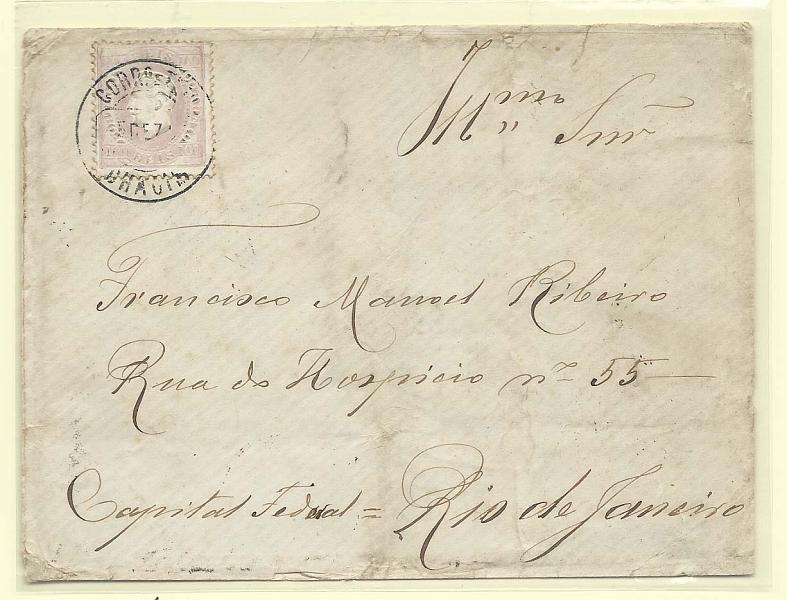 CORREIO
DEZ
BRAGA
Illmo Snr
Francisco Manoel Ribeiro
Rua do Hospicio no 55
Capital Federal = Rio de Janeiro